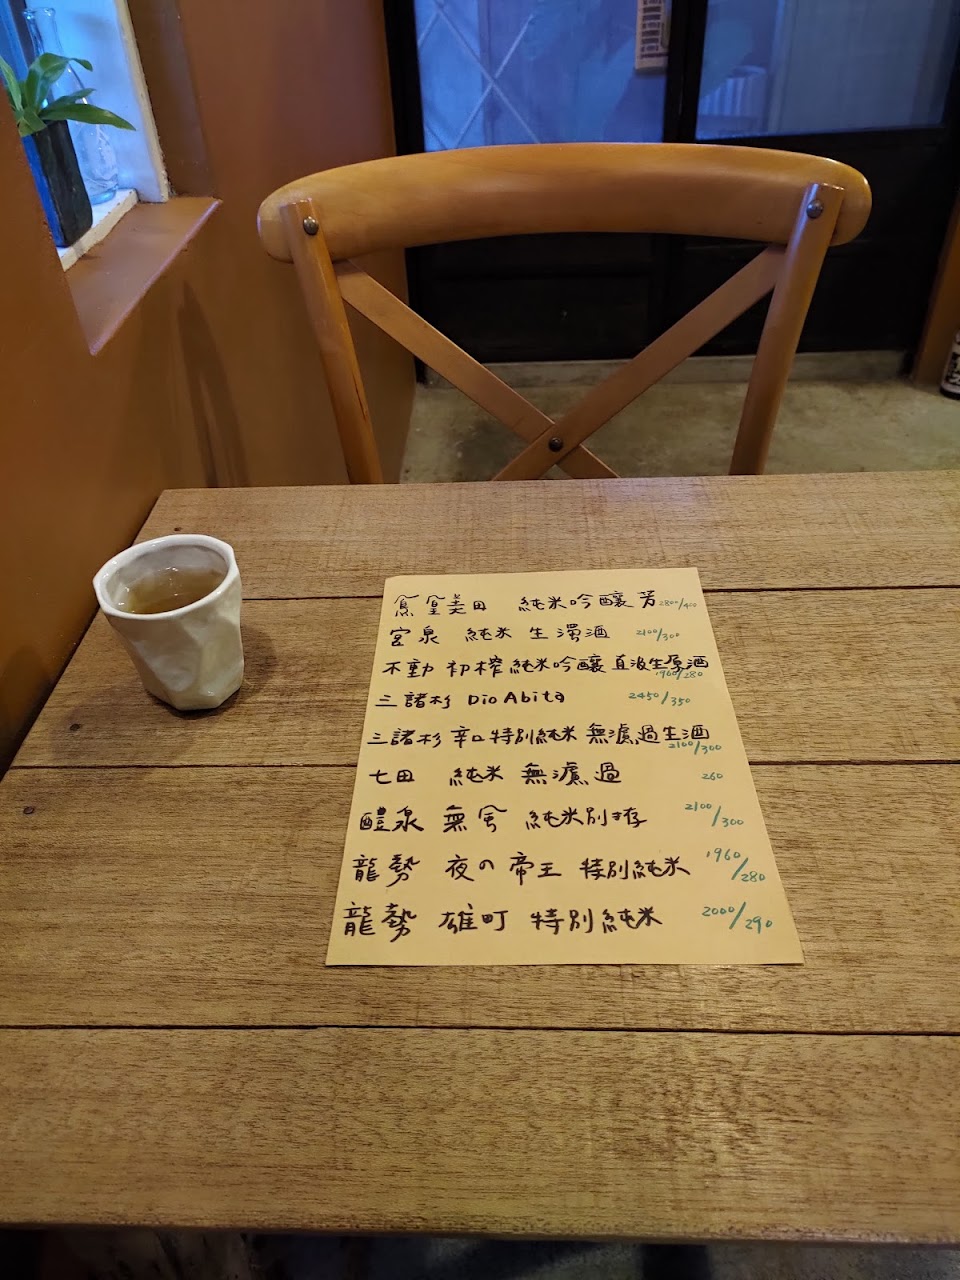 鳳凰美田 純米吟釀 芳 2800/400
宮泉 純米 生濁酒 2100/300
不動 初榨 純米吟釀 直汲生原酒 1960/280
三諸杉 Dio Abita 2450/350
三諸杉 辛口特別純米 無濾過生酒 2100/300
七田 純米 無濾過 260
醴泉 無昝 純米別誂 2100/300
龍勢 夜の帝王 特別純米 1960/280
龍勢 雄町 特別純米 2000/290